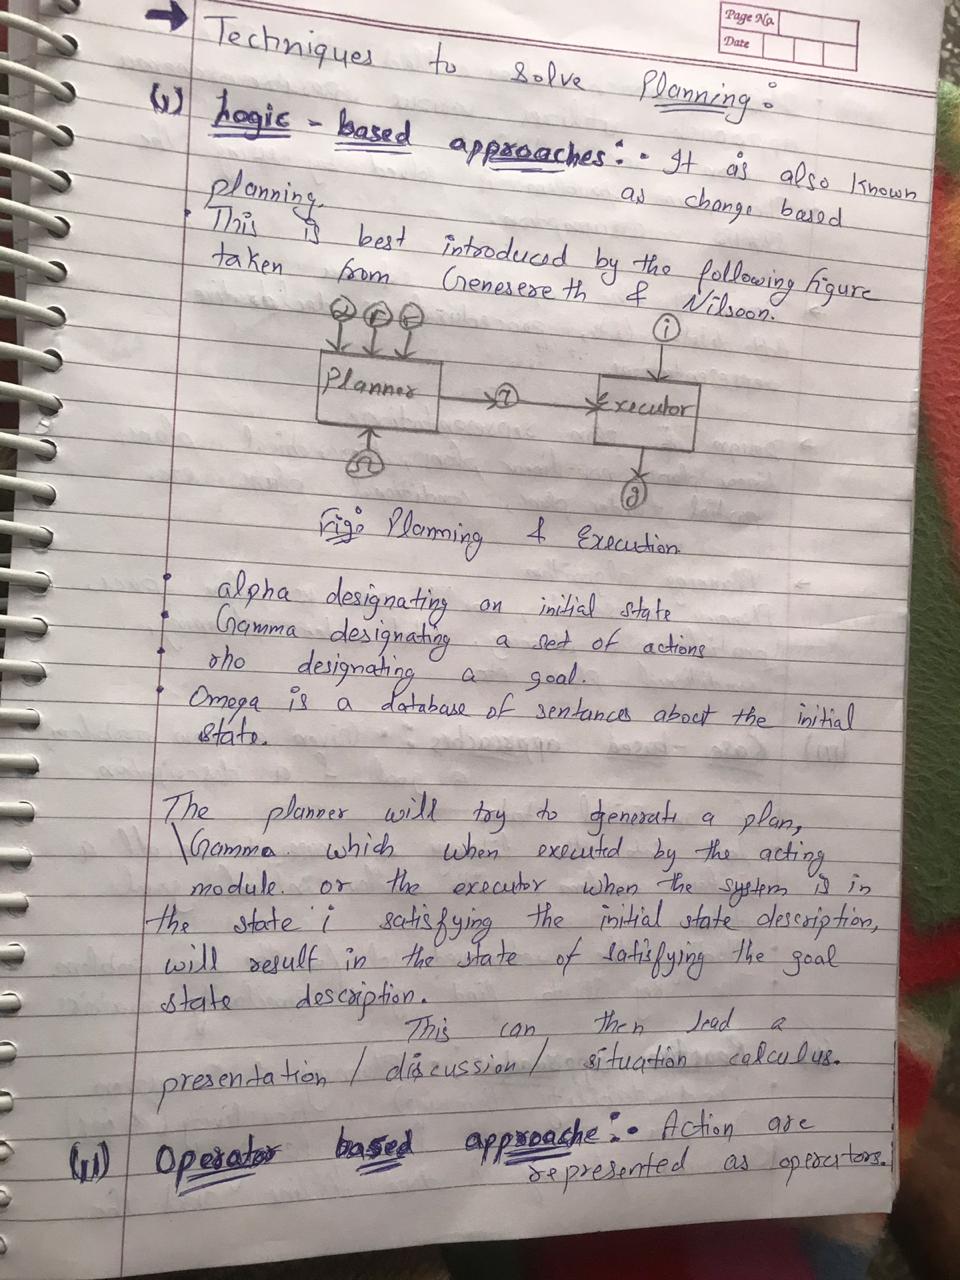 Page No.
Date
→ Techniques to solve Planning:
(i) Logic - based approaches:- It is also known
as change based
planning.
• This is best introduced by the following figure
taken from Genesereth & Nilsoon.
Planner
Executor
i
g
Fig: Planning & Execution
• alpha designating an initial state
• Gamma designating a set of actions
• rho designating a goal.
• Omega is a database of sentances about the initial
state.
The planner will try to generate a plan,
\Gamma which when executed by the acting
module or the executor when the system is in
the state i satisfying the initial state description,
will result in the state of satisfying the goal
state description.
This can then lead a
presentation / discussion / situation calculus.
(ii) Operator based approache:- Action are
represented as operators.